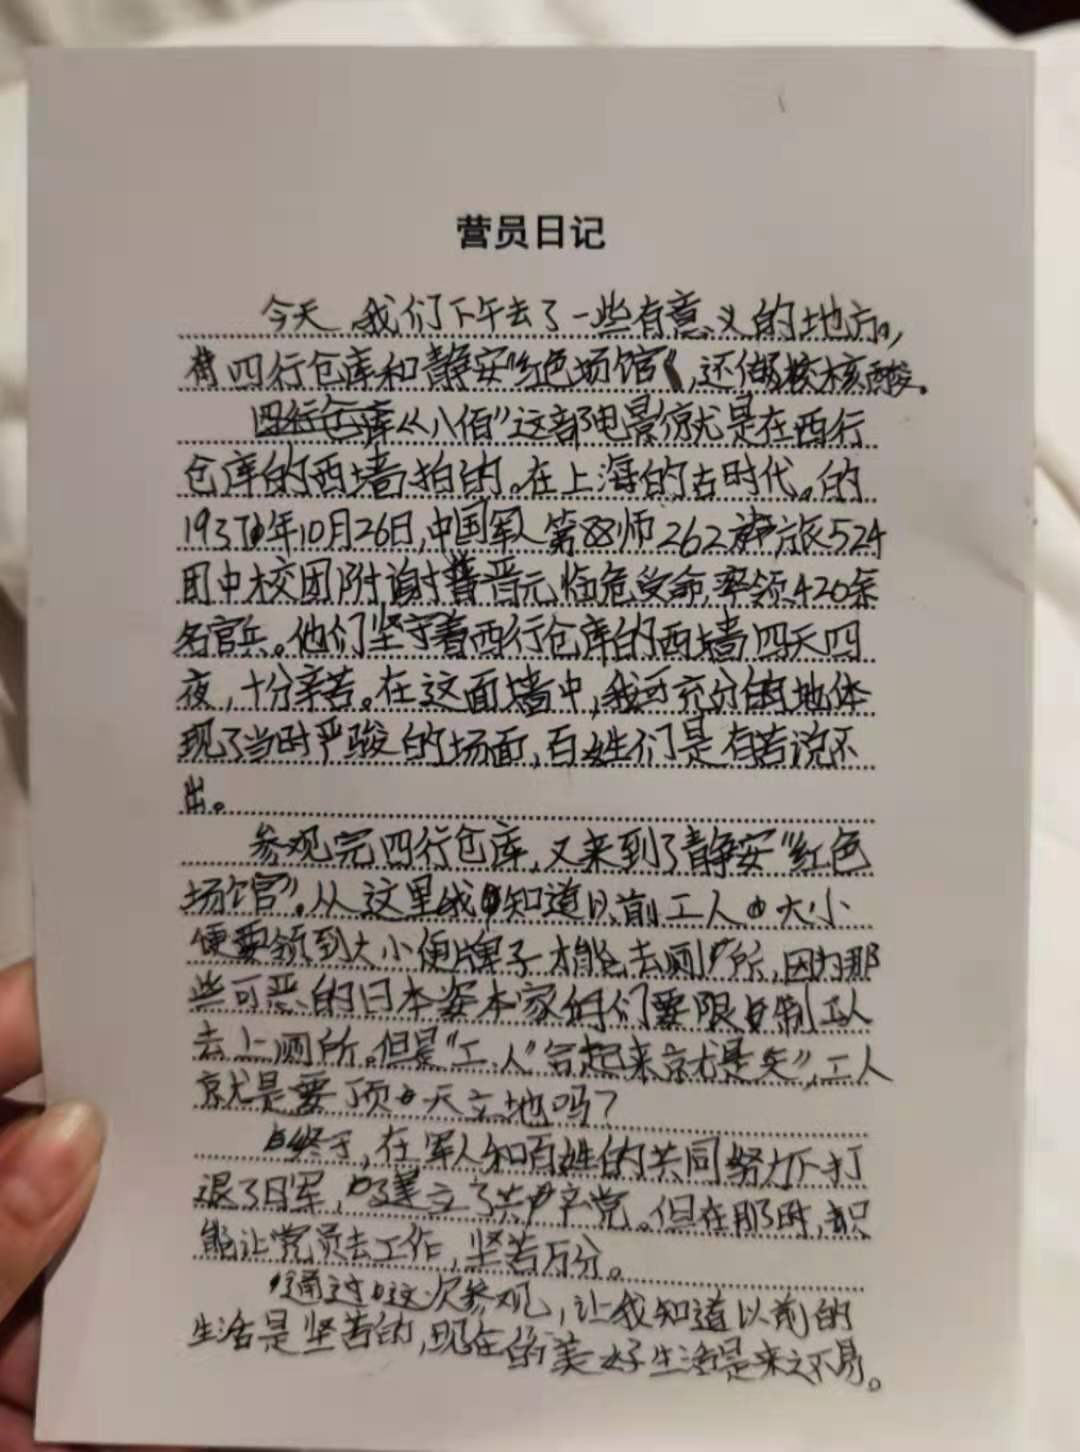 营员日记
今天,我们下午去了一些有意义的地方。,
有四行仓库和静安"红色场馆",还做核核酸。
"八佰"这部电影就是在西行
仓库的西墙拍的。在上海的古时代。的
1937年10月26日,中国军人第88师262旅524
团中校团附谢晋元临危受命,率领420余
名官兵。他们坚守着西行仓库的西墙四天四
夜,十分辛苦。在这面墙中,我可充分的地体
现了当时严峻的场面,百姓们是有苦说不
出。
参观完四行仓库,又来到了静安"红色
场馆"。从这里我知道以前工人大小
便要领到大小便牌子才能去厕所,因为那
些可恶的日本资本家们要限制工人
去上厕所。但是"工人"合起来就是天",工人
就是要顶天立地吗?
终于,在军人和百姓的共同努力下打
退了日军,建立了共产党。但在那时,只
能让党员去工作,坚苦万分。
通过这次参观,让我知道以前的
生活是坚苦的,现在的美好生活是来之不易。